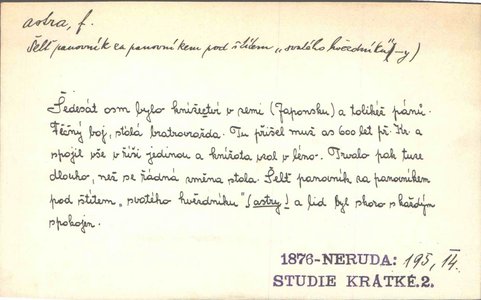 astra, f.
Šelť panovník za panovníkem pod štítem „svatého hvězdníku“ (-y)
Šedesát osm bylo knížectví v zemi (Japonsku) a tolikéž pánů.
Věčný boj, stálá bratrovražda. Tu přišel muž as 600 let př. Kr. a
spojil vše v říši jedinou a knížata vzal v léno. Trvalo pak tuze
dlouho, než se řádná změna stala. Šelť panovník za panovníkem
pod štítem „svatého hvězdníku“ (astry) a lid byl skoro s každým
spokojen.
1876-NERUDA: 195, 14.
STUDIE KRÁTKÉ.2. II.